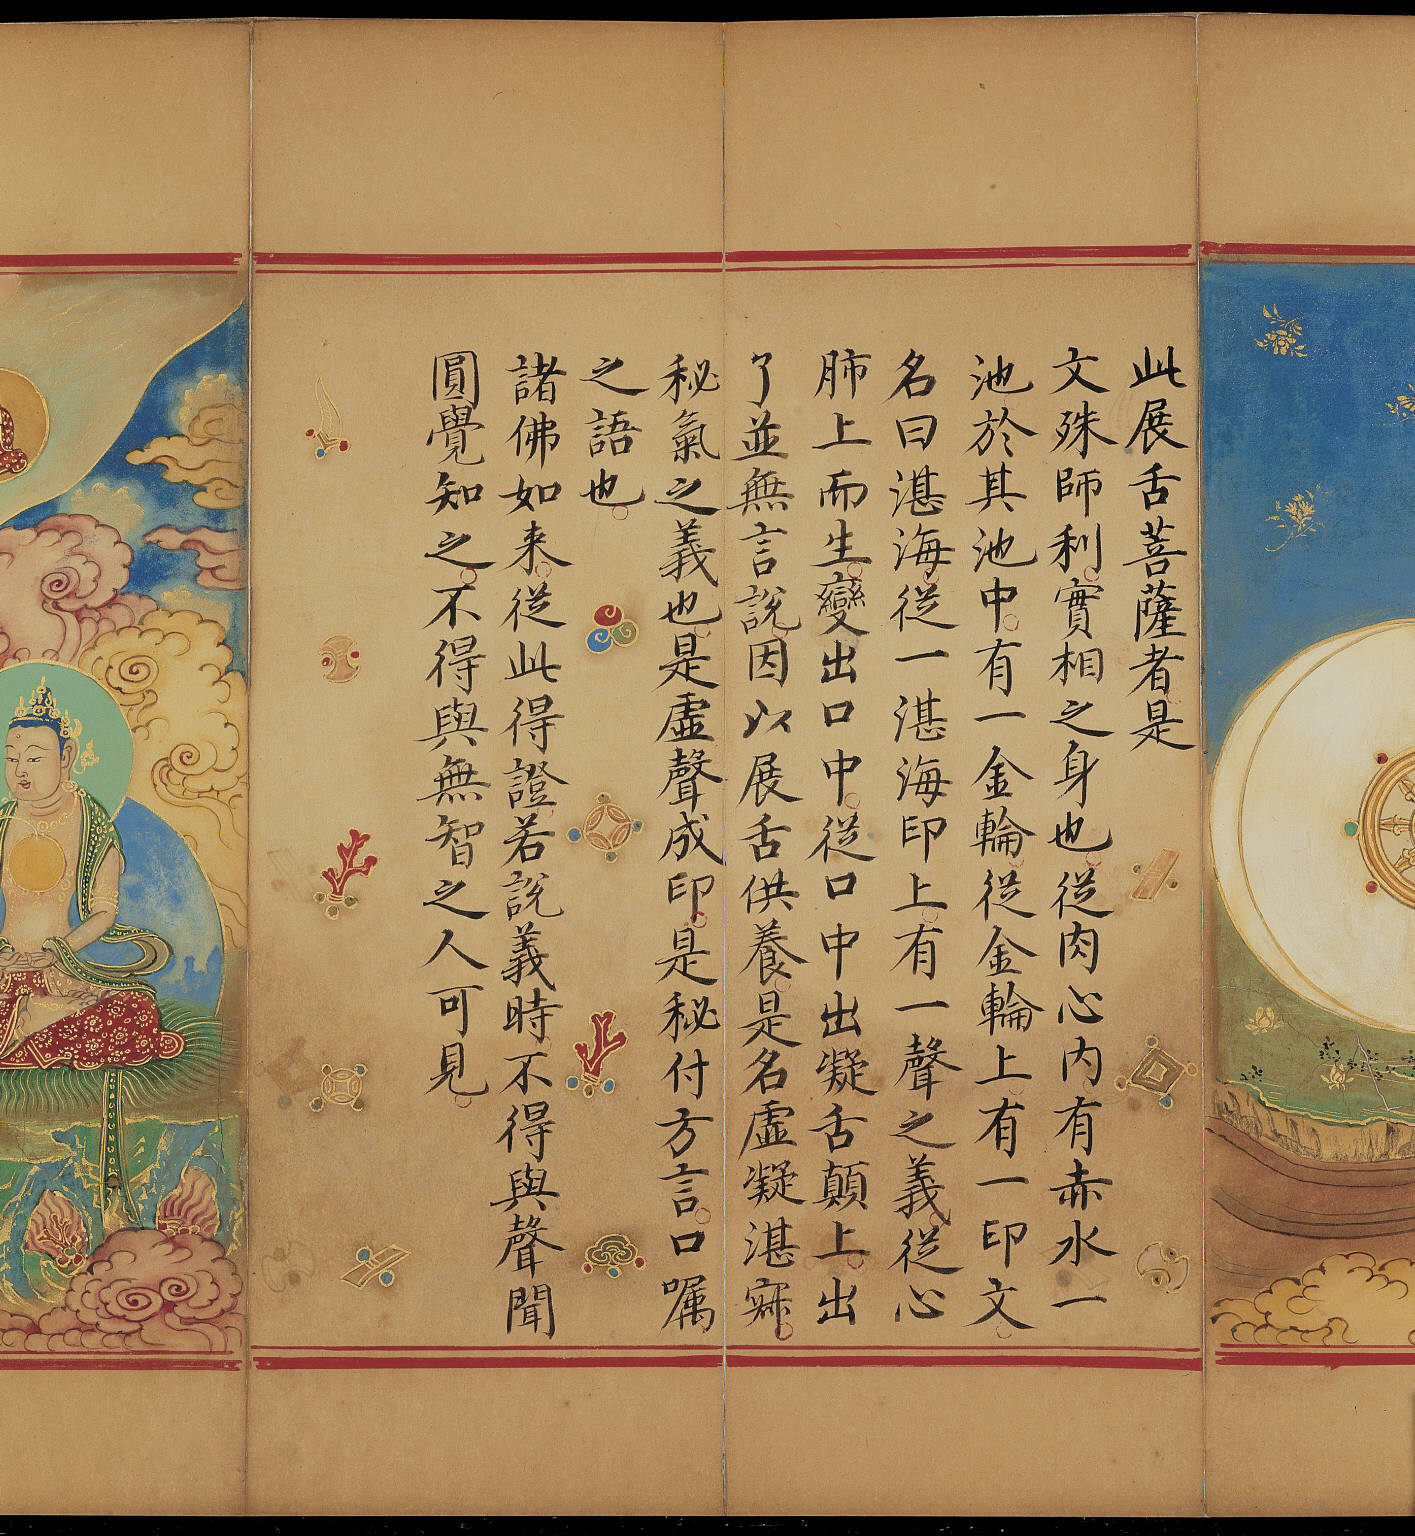 此展舌菩薩者是
文殊師利實相之身也從肉心內有赤水一
池於其池中有一金輪從金輪上有一印文
名曰湛海從一湛海印上有一聲之義從心
肺上而生變出口中從口中出凝舌顛上出
了並無言說因以展舌供養是名虛凝湛寂
秘氣之義也是虛聲成印是秘付方言口嘱
之語也
諸佛如来從此得證若說義時不得與聲聞
圓覺知之不得與無智之人可見